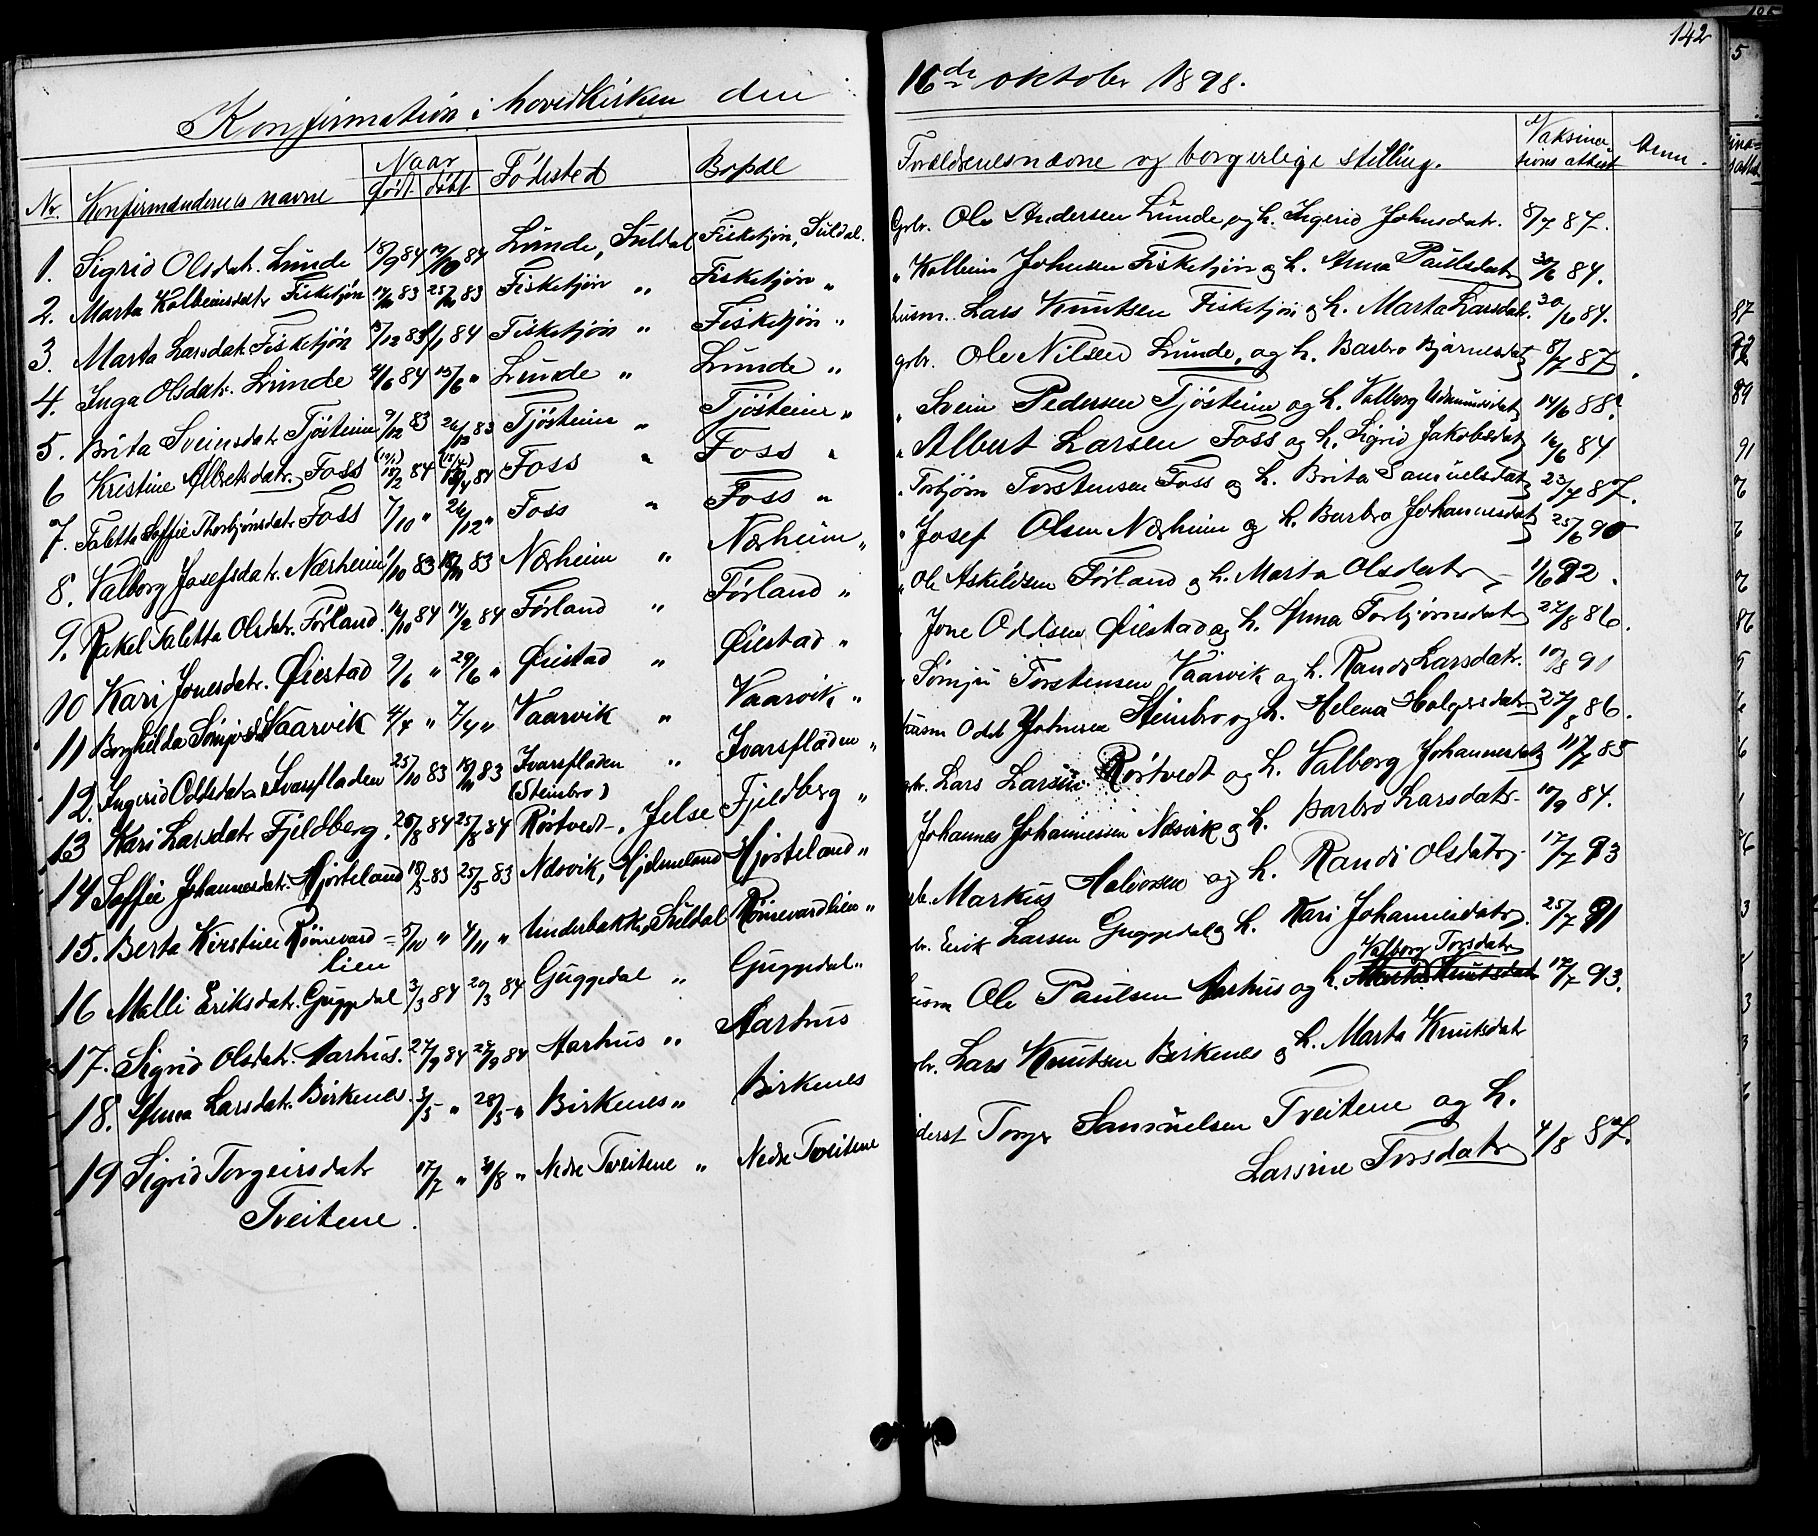 142
Konfirmation i hovedkirken den 16de oktober 1898.
Nr. Konfirmandernes navne Naar født døbt Fødested Bopæl Forældrenes navne og borgerlige stilling. Vaksinations attest Anm.
1. Sigrid Olsdatr. Lunde 18/9 84 84 Lunde, Suldal Fisketjøn, Suldal. Gbr. Ole Andersen Lunde og h. Ingerid Johnsdatr. 8/7 87.
2. Marta Kolbeinsdatr Fisketjøn 83 83 Fisketjøn " Fisketjøn " " Kolbein Johnsen Fisketjøn og h. Anna Paulsdatr 30/6 84.
3. Marta Larsdatr. Fisketjøn 83 84 Fisketjøn " Fisketjøn " husm. Lars Knutsen Fisketjøn og h. Marta Larsdatr. 30/6 84.
4. Inga Olsdatr. Lunde 84 15/6 " Lunde " Lunde " gbr. Ole Nilsen Lunde, og h. Barbro Bjarnesdatr 8/7 87
5. Brita Sveinsdatr Tjøsteim 9/12 83 26/12 83 Tjøsteim " Tjøsteim " " Svein Pedersen Tjøsteim og h. Valborg 14/6 88
6 Kristine Albretsdatr. Foss 84 84 Foss " Foss " " Albert Larsen Foss og h. Sigrid Jakobsdatr 84
7. Taletta Soffie Thorbjørnsdatr Foss 7/10 " 26/12 " Foss " Foss " " Torbjørn Torstensen Foss og h. Brita Samuelsdatr 23/7 87.
8. Valborg Josefsdatr. Nærheim 83 83 Nærheim " Nærheim " " Josef Olsen Nærheim og h. Barbro Johannesdatr 25/6 90
9. Rakel Taletta Olsdatr. Førland. 84 14/2 84 Førland " Førland " " Ole Askildsen Førland og h. Marta Olsdatr 1/6 92.
10 Kari Jonesdatr. Øiestad 9/6 " 29/6 " Øiestad " Øiestad " Jone Oddsen Øiestad og h. Anna Torbjørnsdatr 27/8 86.
11 Borghilda Vaarvik 4/4 " 7/4 " Vaarvik " Vaarvik " " Torstensen Vaarvik og h. Randi Larsdatr. 10/8 91
12. Ingerid Oddsdatr Ivarsfladen 25/10 83 83 Ivarsfladen " (Steinbro) Ivarsfladen " husm Odd Johnsen Steinbro og h. Helena Holgersdatr 27/8 86.
13 Kari Larsdatr Fjeldberg. 84 25/8 84 Rørtvedt, Jelse Fjeldberg " gbr. Lars Larsen Rørtvedt og h. Valborg Johannesdatr 17/7 85
14 Soffie Johannesdatr. Hjorteland 83 25/5 83 Næsvik, Hjelmeland Hjorteland " Johannes Johannessen Næsvik og h. Barbro Larsdatr 10/9 84.
15. Berta Kirstine Rønnevard= 5/10 " 4/11 " Underbakk, Suldal Rønnevardlien " gbr. Markus Halvorsen og h. Randi Olsdatr. 17/7 93
lien
16 Malli Eriksdatr. Guggedal 3/3 84 29/3 84 Guggedal " Guggedal " gbr. Erik Larsen Guggedal og h. Kari Johannesdatr. 25/7 91
Valborg Torsdatr
17. Sigrid Olsdatr. Aarhus. 84 84 Aarhus " Aarhus husm Ole Paulsen Aarhus og h. Marta Knutsdatr 17/7 93.
18. Anna Larsdatr. Birkenes. 3/5 " 28/5 " Birkenes " Birkenes gbr. Lars Knutsen Birkenes og h. Marta Knutsdatr
19 Sigrid Torgeirsdatr 17/7 " " Nedre Tveitene " Nedre Tveitene Torger Samuelsen Tveitene og h.
Tveitene. Larsine Torsdatr 4/8 87.